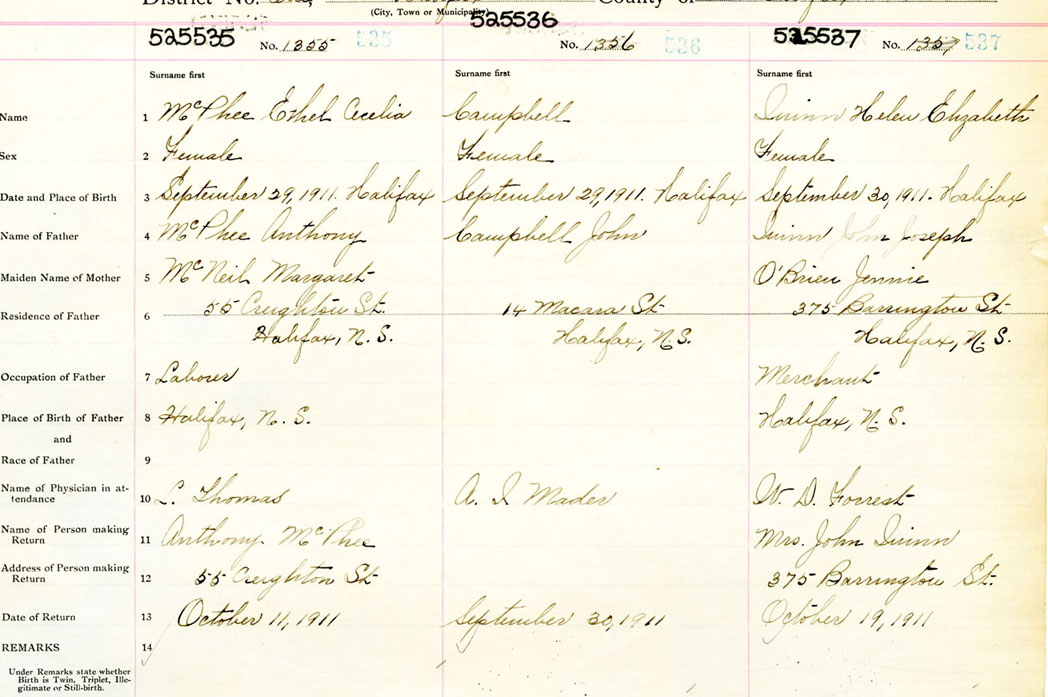 District No. County of
(City, Town or Municipality)
525535 No. 1355 535 525536 No. 1356 536 525537 No. 1357 537
Surname first Surname first Surname first
Name 1 McPhee Ethel Cecelia Campbell Quinn Helen Elizabeth
Sex 2 Female Female Female
Date and Place of Birth 3 September 29, 1911. Halifax September 29, 1911. Halifax September 30, 1911. Halifax
Name of Father 4 McPhee Anthony Campbell John Quinn John Joseph
Maiden Name of Mother 5 McNeil Margaret O'Brien Jennie
Residence of Father 6 55 Creighton St. 14 Macara St 375 Barrington St
Halifax, N.S. Halifax, N.S. Halifax, N.S.
Occupation of Father 7 Laborer Merchant
Place of Birth of Father 8 Halifax, N.S. Halifax, N.S.
and
Race of Father 9
Name of Physician in at-
tendance 10 L. Thomas A. I Mader W. D. Forrest
Name of Person making
Return 11 Anthony McPhee Mrs. John Quinn
Address of Person making
Return 12 55 Creighton St 375 Barrington St.
Date of Return 13 October 11, 1911 September 30, 1911 October 19, 1911
REMARKS 14
Under Remarks state whether
Birth is Twin, Triplet, Ille-
gitimate or Still-birth.